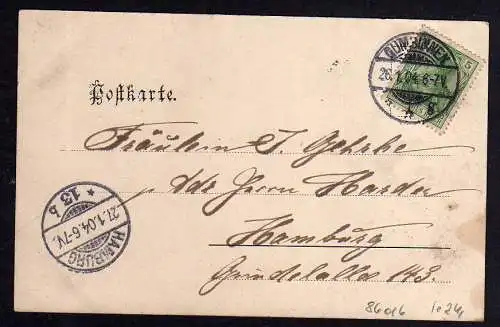 GUMBINNEN
26.1.04.6-7V.
* *
5
Postkarte.
Fräulein J. Gehrke
Adr Herrn Harder
Hamburg
Grindelallee 143.
HAMBURG
27.1.04.6-7V.
* 13 b
86016